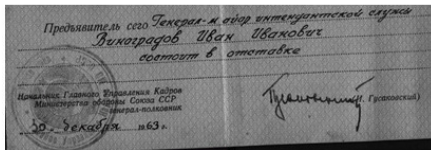 Предъявитель сего Генерал-майор интендантской службы
Виноградов Иван Иванович
состоит в отставке
Начальник Главного Управления Кадров
Министерства обороны Союза ССР
генерал-полковник
(И. Гусаковский)
30 декабря 1963 г.